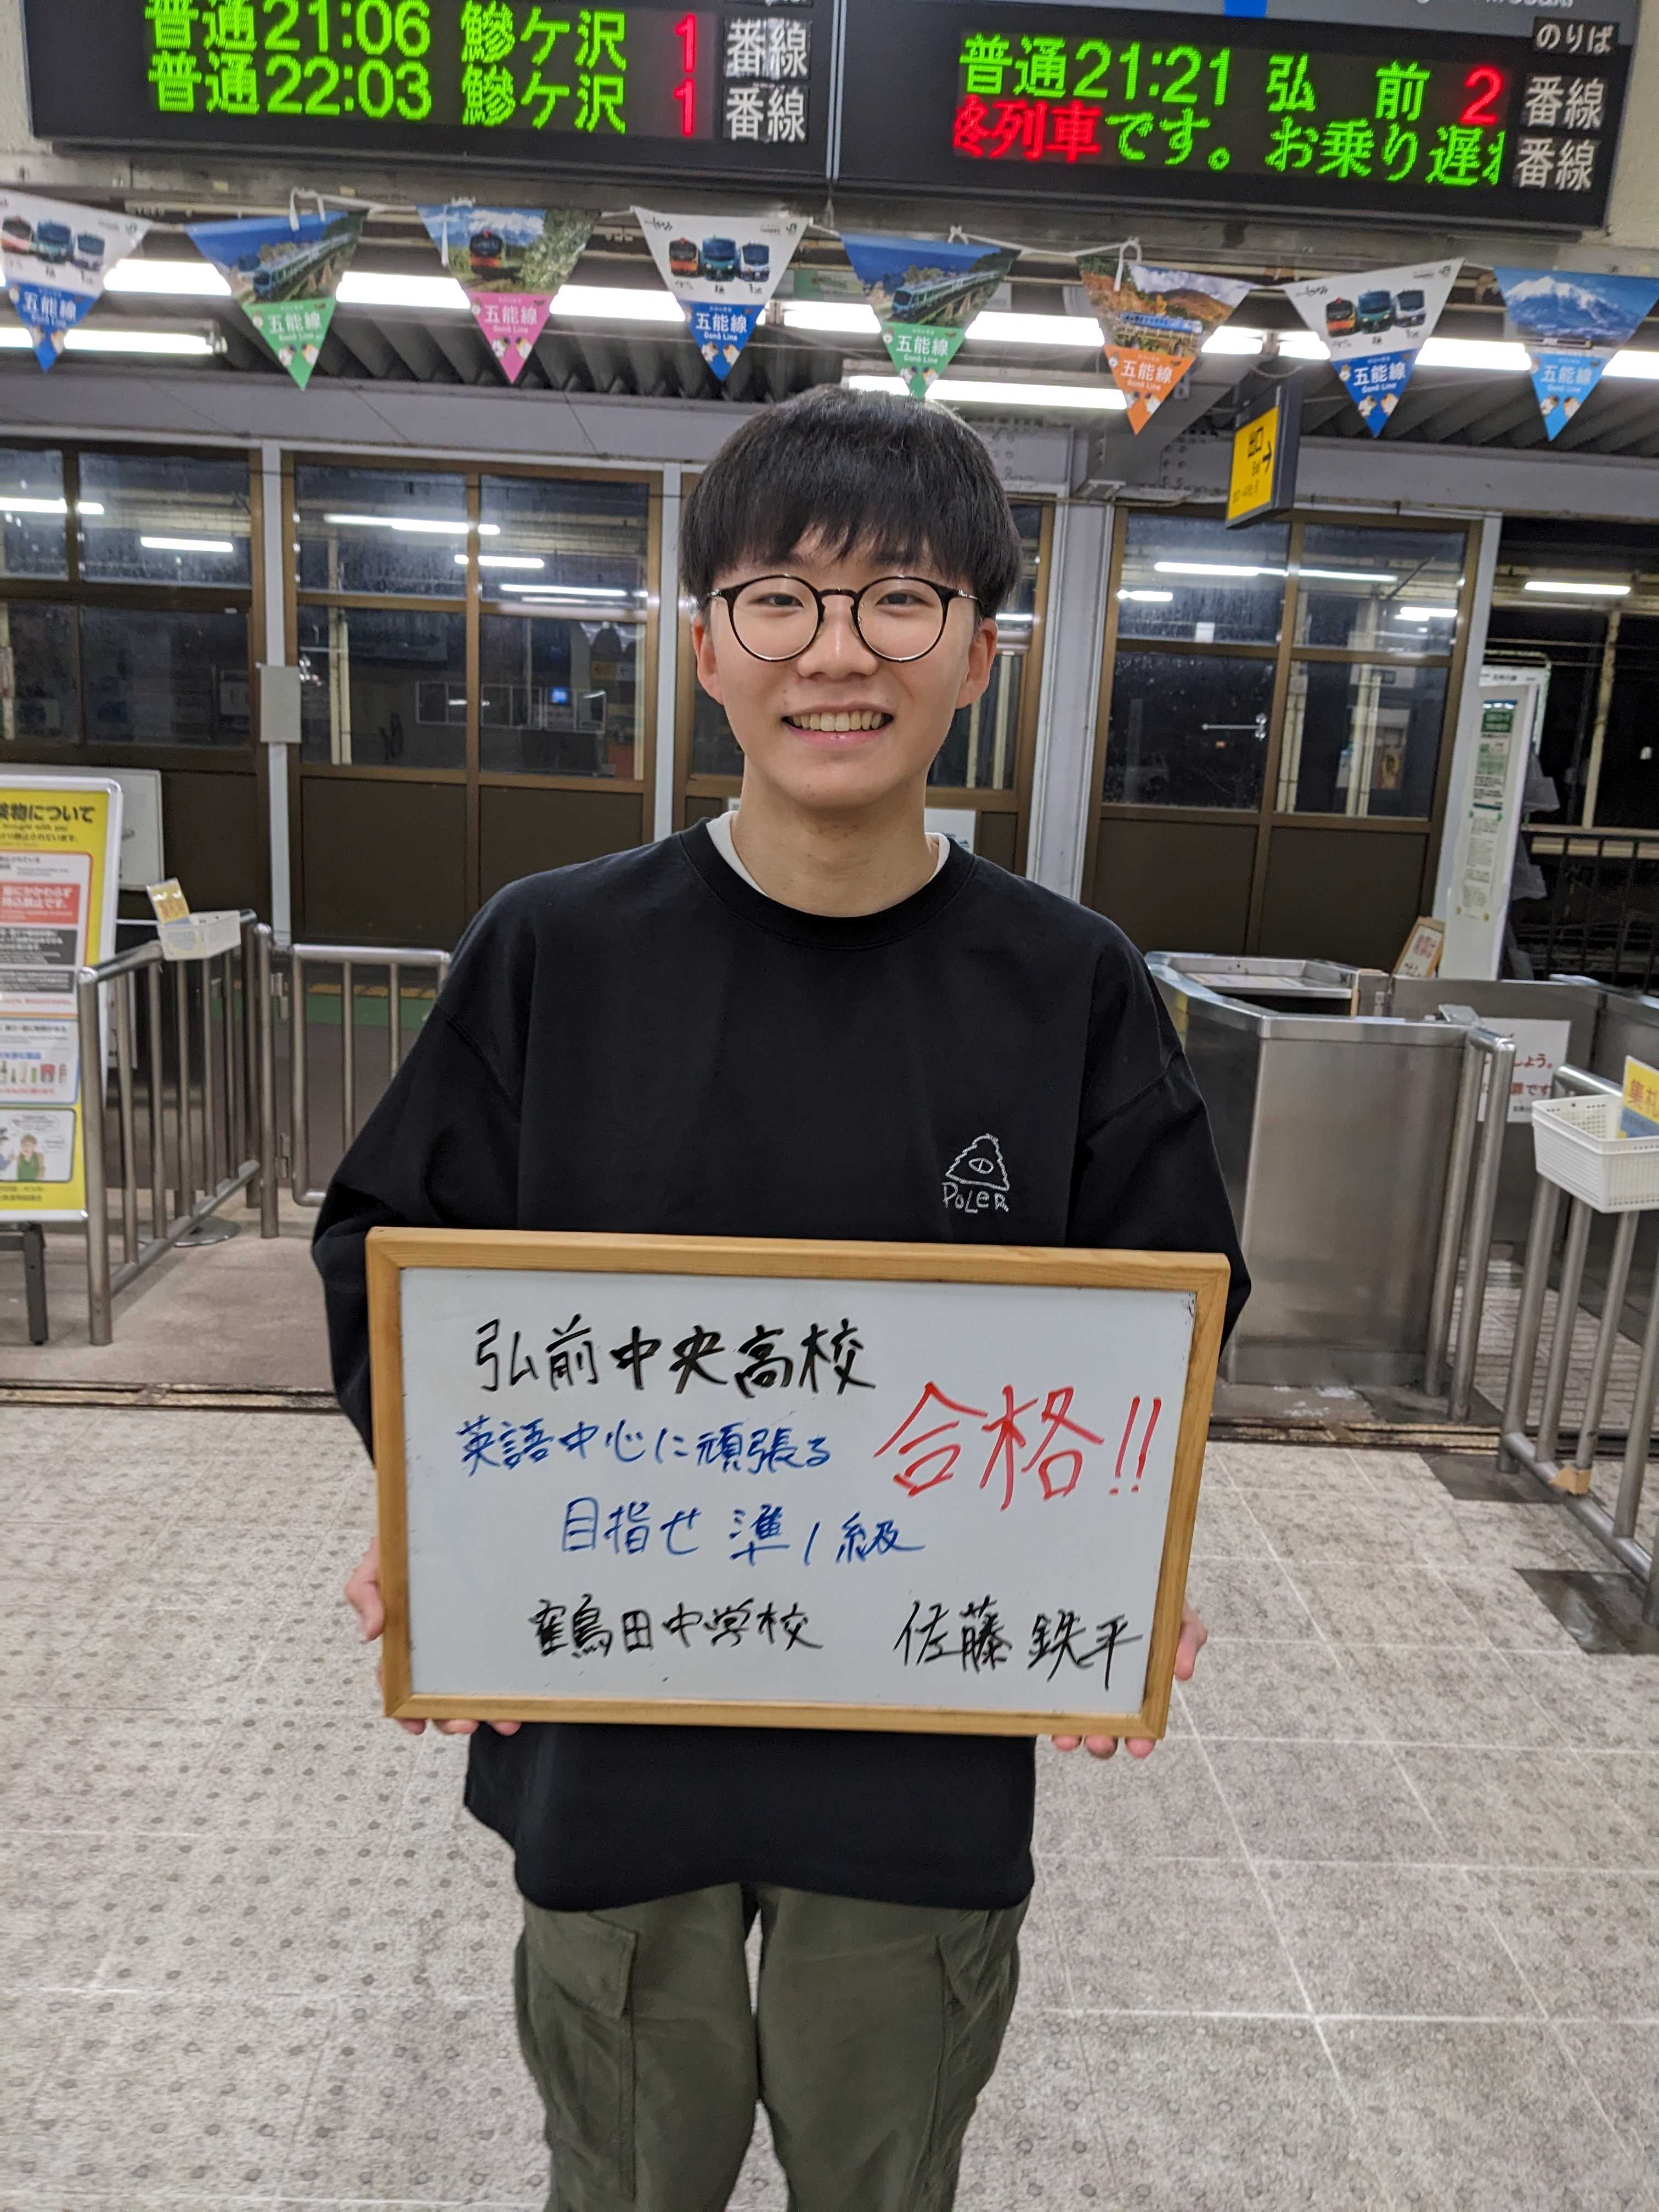 普通21:06 鰺ケ沢 1 番線
普通22:03 鰺ケ沢 1 番線
のりば
普通21:21 弘前 2 番線
終列車です。お乗り遅れ 番線
五能線
Gono Line
五能線
Gono Line
五能線
Gono Line
五能線
Gono Line
五能線
Gono Line
五能線
Gono Line
五能線
Gono Line
五能線
Gono Line
出口
Exit
物について
にかかわらず
持込禁止です。
しょう。
罪です
集札
POLER
弘前中央高校
合格!!
英語中心に頑張る
目指せ 準1級
鶴田中学校 佐藤 鉄平